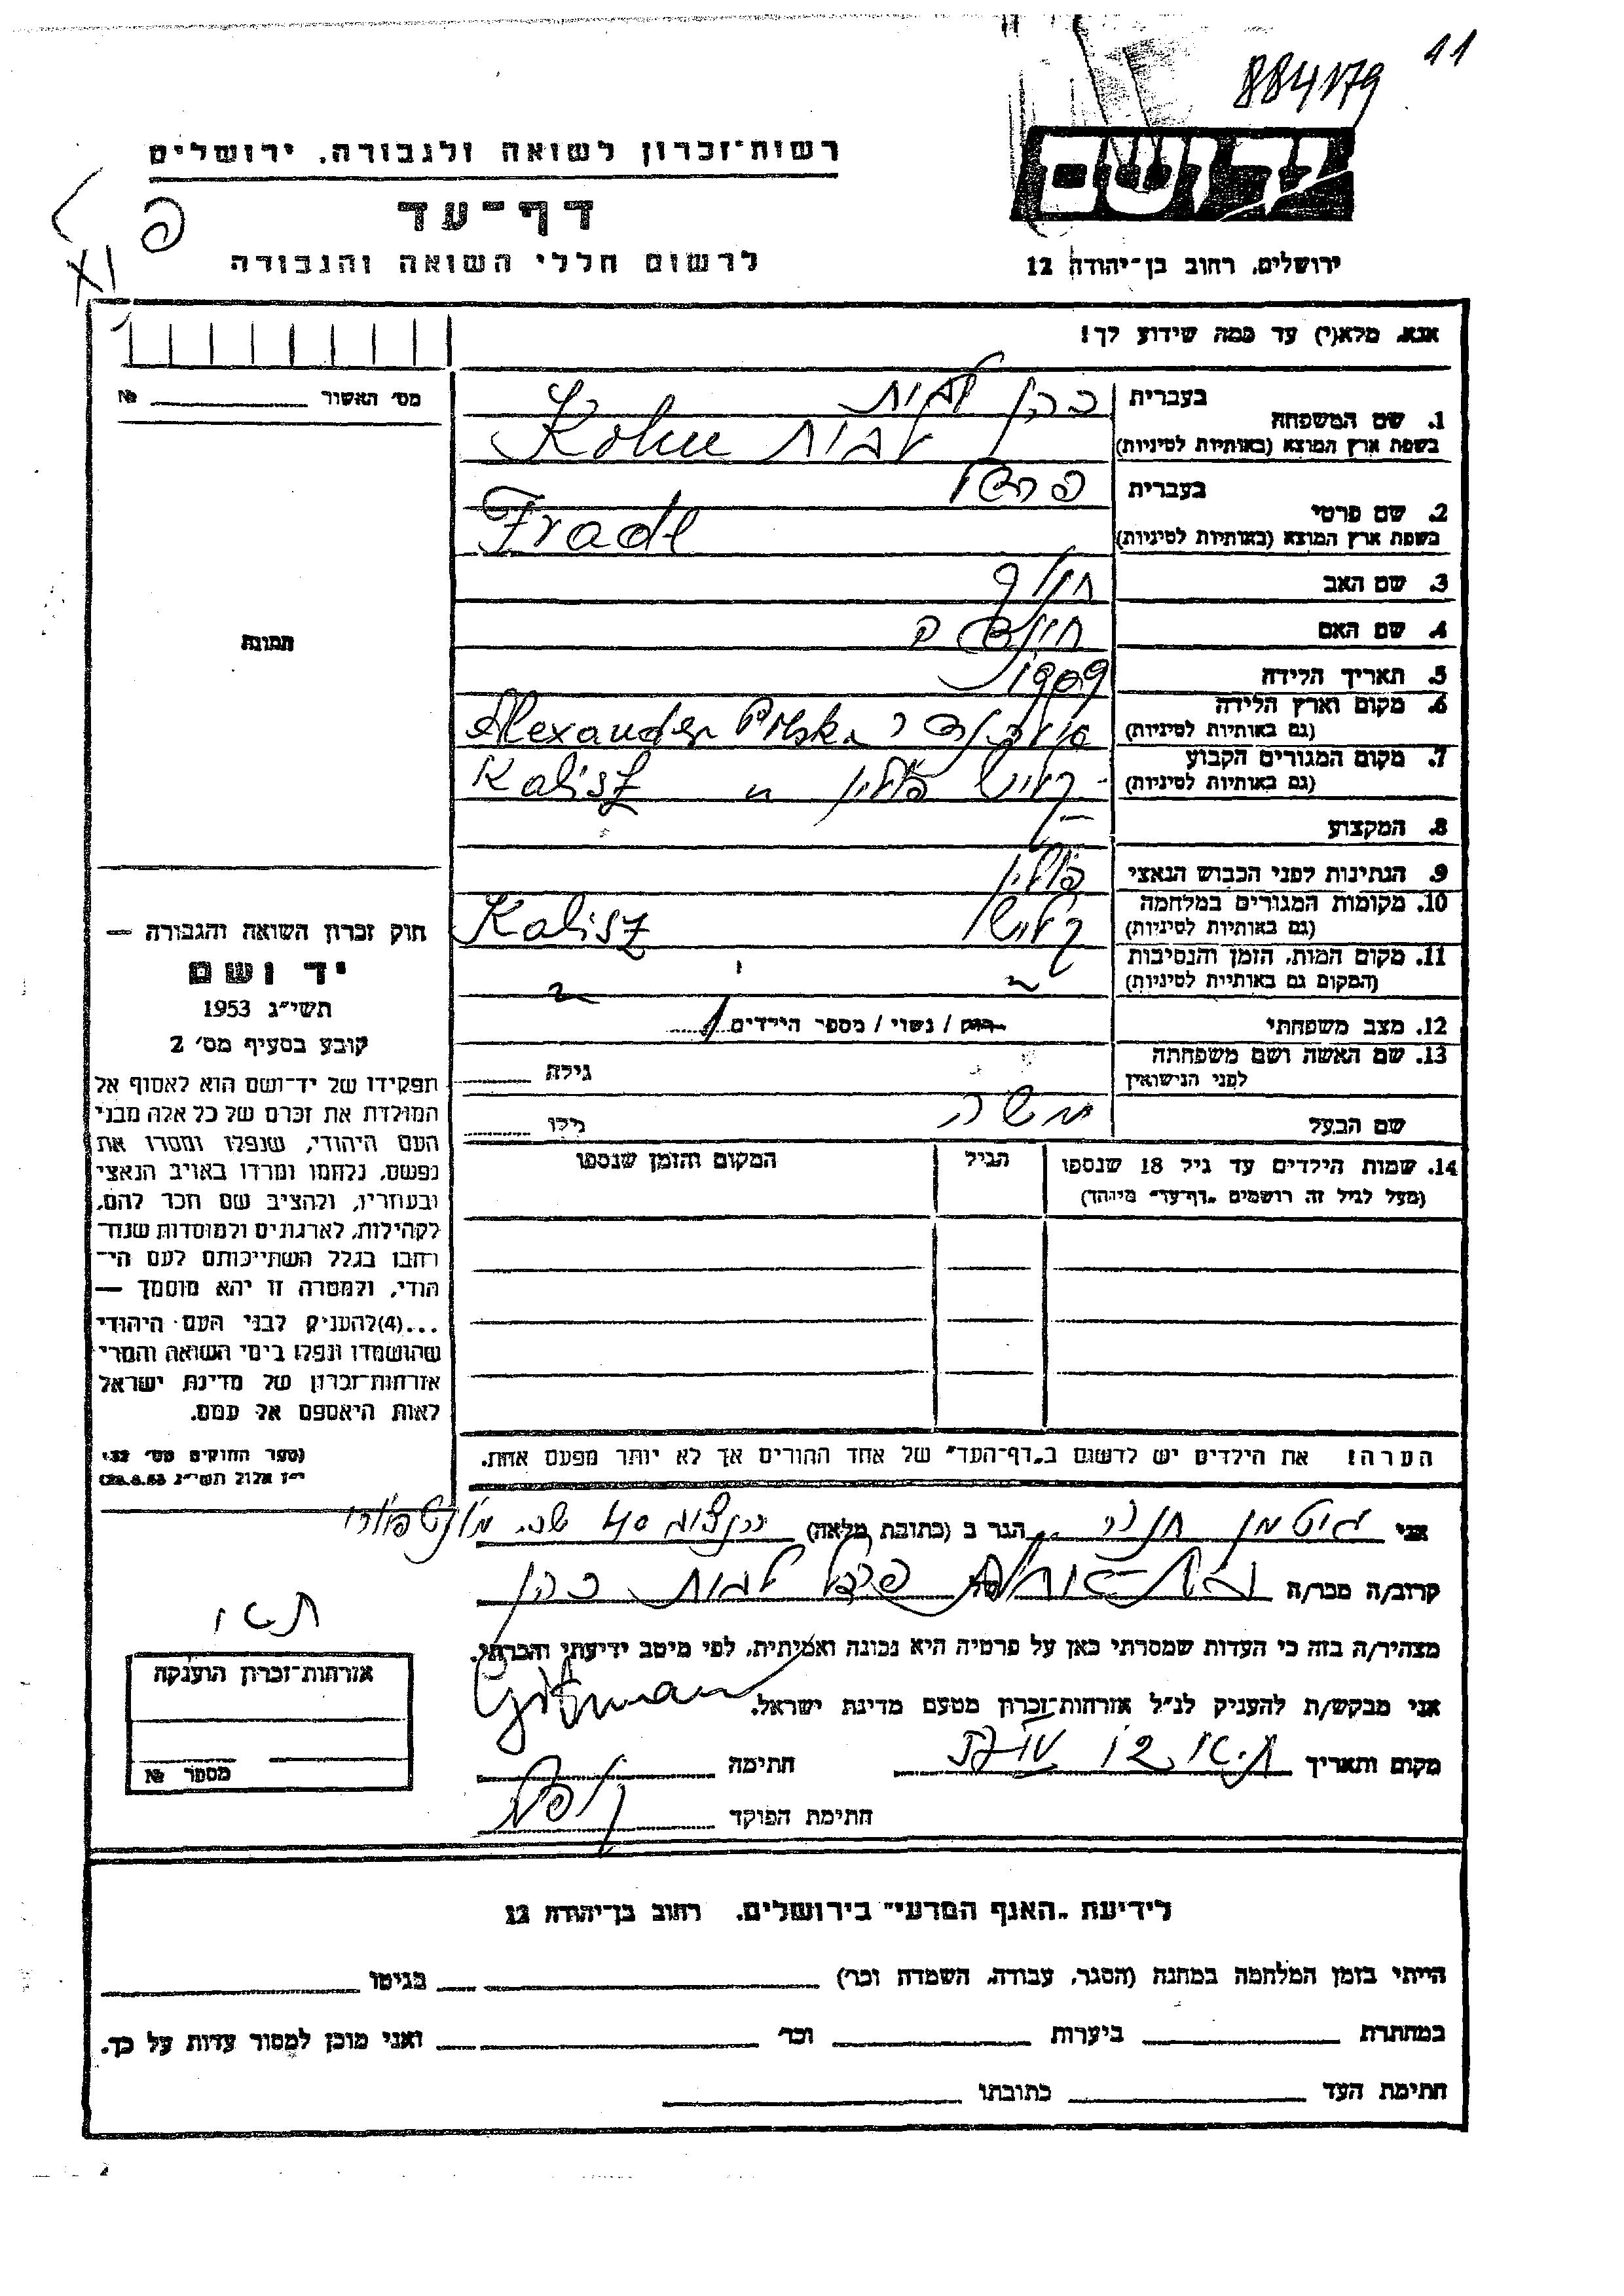 11
884179
רשות־זכרון לשואה ולגבורה, ירושלים
יד ושם
דף־עד
פ
XI
לרשום חללי השואה והגבורה
ירושלים, רחוב בן־יהודה 12
אנא, מלא(י) עד כמה שידוע לך!
מס׳ האשור № 
1. שם המשפחה בעברית כהן לבית
בשפת ארץ המוצא (באותיות לטיניות) Kohn לבית
2. שם פרטי בעברית
בשפת ארץ המוצא (באותיות לטיניות) Fradl
3. שם האב
4. שם האם
תמונה
5. תאריך הלידה 1909
6. מקום וארץ הלידה Alexander Polska
(גם באותיות לטיניות)
7. מקום המגורים הקבוע קליש פולין Kalisz
(גם באותיות לטיניות)
8. המקצוע —
9. הנתינות לפני הכבוש הנאצי פולין
10. מקומות המגורים במלחמה קליש Kalisz
(גם באותיות לטיניות)
11. מקום המות, הזמן והנסיבות
(המקום גם באותיות לטיניות)
12. מצב משפחתי רווק / נשוי / מספר הילדים 1
13. שם האשה ושם משפחתה גילה
לפני הנישואין
שם הבעל משה גילו
14. שמות הילדים עד גיל 18 שנספו הגיל המקום והזמן שנספו
(מעל לגיל זה רושמים "דף־עד" מיוחד)
חוק זכרון השואה והגבורה —
יד ושם
תשי״ג 1953
קובע בסעיף מס׳ 2
תפקידו של יד־ושם הוא לאסוף אל
המולדת את זכרם של כל אלה מבני
העם היהודי, שנפלו ומסרו את
נפשם, נלחמו ומרדו באויב הנאצי
ובעוזריו, ולהציב שם וזכר להם,
לקהילות, לארגונים ולמוסדות שנח־
רבו בגלל השתייכותם לעם הי־
הודי, ולמטרה זו יהא מוסמך —
...(4)להעניק לבני העם היהודי
שהושמדו ונפלו בימי השואה והמרי
אזרחות־זכרון של מדינת ישראל
לאות היאספם אל עמם.
(ספר החוקים מס׳ 132
י״ז אלול תשי״ג 28.8.53)
הערה! את הילדים יש לרשום ב"דף־העד" של אחד ההורים אך לא יותר מפעם אחת.
אני גוטמן חנה הגר ב (כתובת מלאה) 40
קרוב/ה מכר/ה לבית כהן
מצהיר/ה בזה כי העדות שמסרתי כאן על פרטיה היא נכונה ואמיתית, לפי מיטב ידיעתי והכרתי.
אני מבקש/ת להעניק לנ״ל אזרחות־זכרון מטעם מדינת ישראל.
מקום ותאריך חתימה Gitman
חתימת הפוקד
אזרחות־זכרון הוענקה
מספר №
לידיעת "האגף המדעי" בירושלים, רחוב בן־יהודה 12
הייתי בזמן המלחמה במחנה (הסגר, עבודה, השמדה וכר) בגיטו
במחתרת ביערות וכר ואני מוכן למסור עדות על כך.
חתימת העד כתובתו